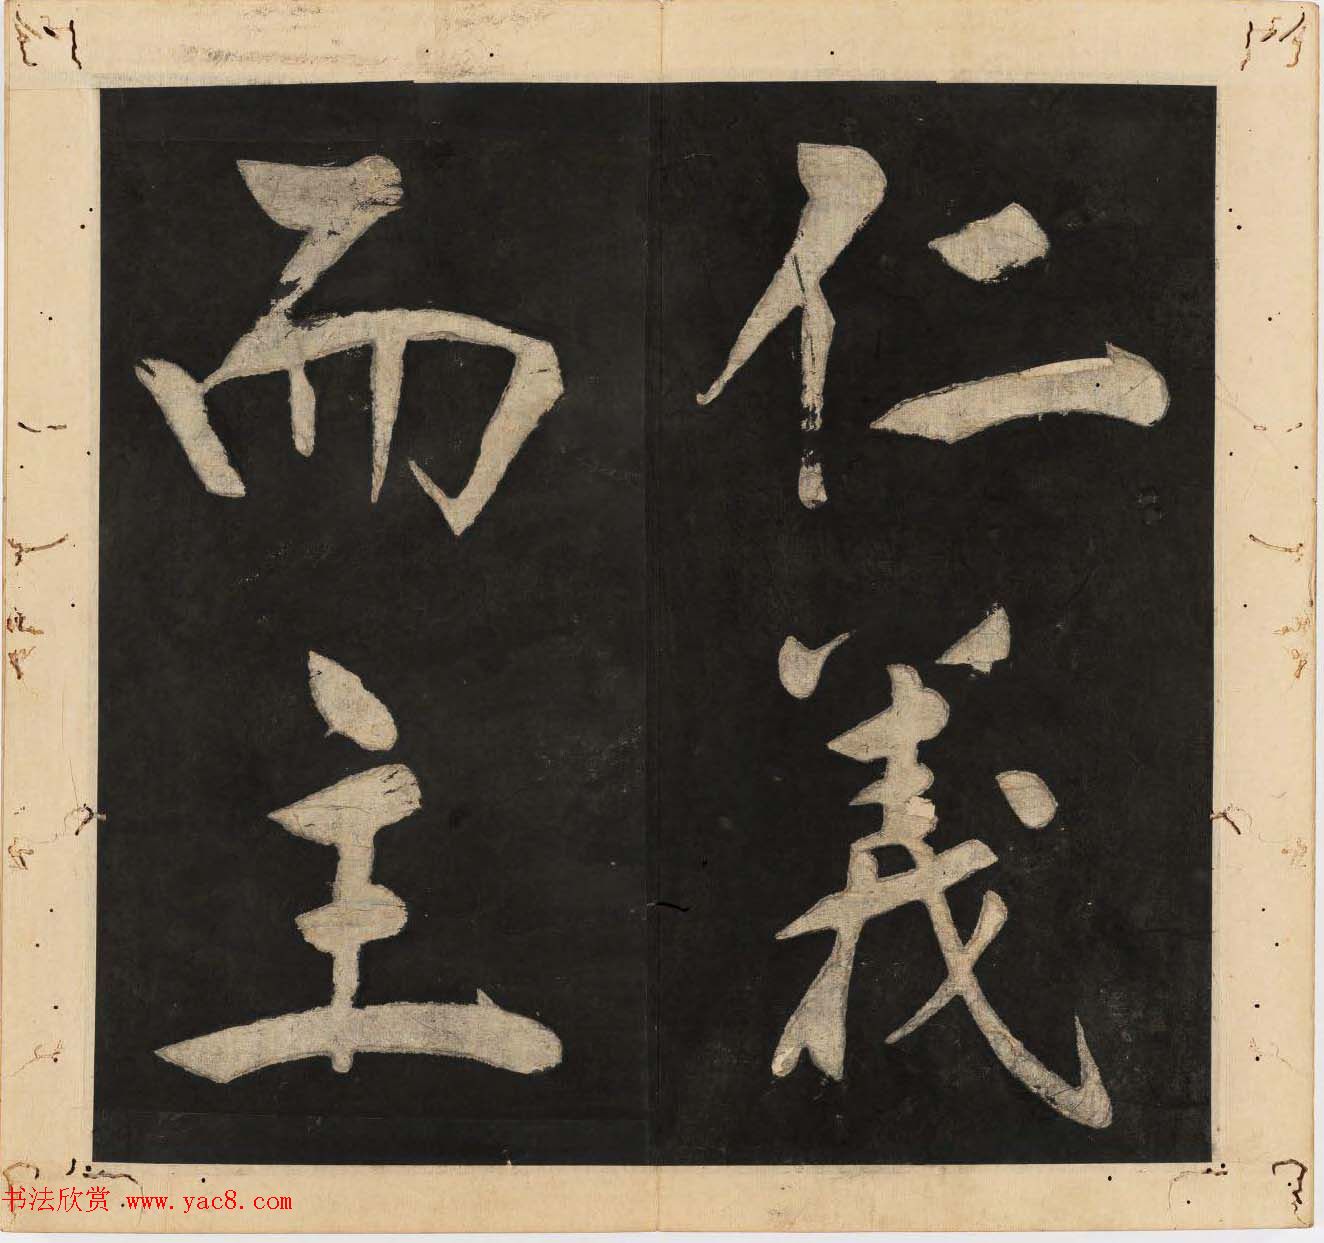 仁義
而主
书法欣赏 www.yac8.com